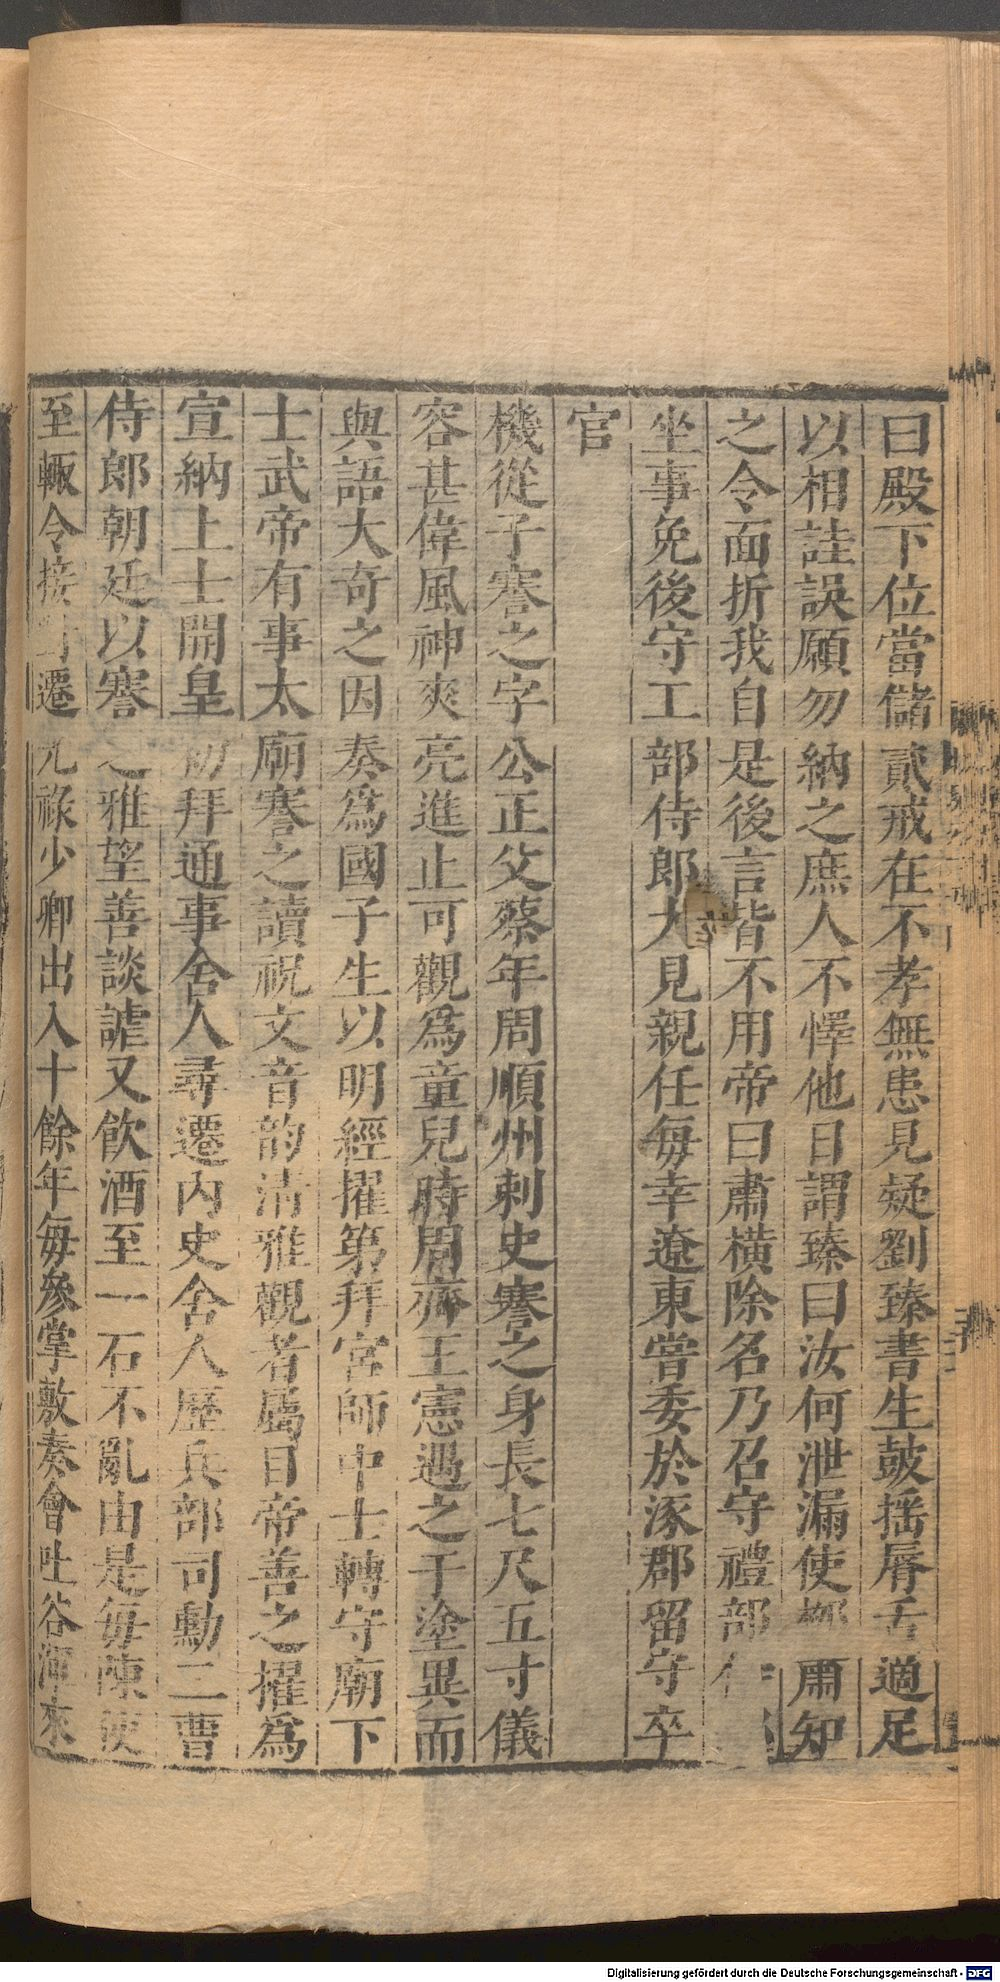 曰殿下位當儲貳戒在不孝無患見疑劉臻書生鼓揺脣舌適足
以相詿誤願勿納之庶人不懌他日謂臻曰汝何泄漏使柳肅知
之令面折我自是後言皆不用帝曰肅橫除名乃召守禮部侍
坐事免後守工部侍郎大見親任每幸遼東嘗委於涿郡留守卒
官
機從子謇之字公正父蔡年周順州刺史謇之身長七尺五寸儀
容甚偉風神爽亮進止可觀爲童兒時周齊王憲遇之于塗異而
與語大奇之因奏爲國子生以明經擢第拜宮師中士轉守廟下
士武帝有事太廟謇之讀祝文音韵清雅觀者屬目帝善之擢爲
宣納上士開皇初拜通事舍人尋遷內史舍人歷兵部司勳二曹
侍郎朝廷以謇之雅望善談謔又飲酒至一石不亂由是每陳使
至輙令接對遷光祿少卿出入十餘年每參掌敷奏會吐谷渾來
Digitalisierung gefördert durch die Deutsche Forschungsgemeinschaft - DFG